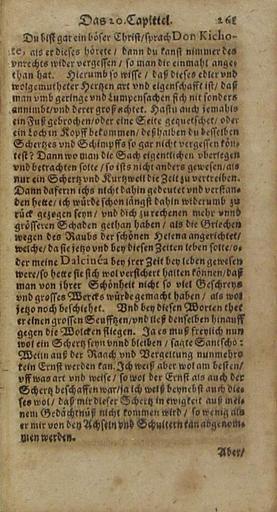 Das 20. Capittel. 261
Du bist gar ein böser Christ / sprach Don Kicho-
te, als er dieses hörete / dann du kanst nimmer des
vnrechts wider vergessen / so man dir einmahl ange-
than hat. Hierumb so wisse / daß dieses edler vnd
wolgemutheter Hertzen art vnd eigenschafft ist / daß
man vmb geringe vnd Lumpensachen sich nit sonders
annimbt / vnd derer groß achtet. Hastu auch jemahls
ein Fuß gebrochen / oder eine Seite gequetschet / oder
ein Loch in Kopff bekommen / deßhalben du desselben
Schertzes vnd Schimpffs so gar nicht vergessen kön-
test? Dann wo man die Sach eigentlichen vberlegen
vnd betrachten solte / so ists nicht anders gewesen / als
nur ein Schertz vnd Kurtzweil die Zeit zu vertreiben.
Dann dafern ichs nicht dahin gedeutet vnd verstan-
den hette / ich würde schon längst dahin widerumb zu
rück gezogen seyn / vnd dich zu rechenen mehr vnnd
grösseren Schaden gethan haben / als die Griechen
wegen des Raubs der schönen Helena angerichtet /
welche / da sie jetzo vnd bey diesen Zeiten leben solte / o-
der meine Dalcinéa bey jrer Zeit bey leben gewesen
were / so hette sie sich wol versichert halten können / daß
man von ihrer Schönheit nicht so viel Geschreys
vnd grosses Wercks würde gemacht haben / als wol
jetzo noch beschiehet. Vnd bey diesen Worten liess
er einen grossen Seufftzen / vnd ließ denselben hinauff
gegen die Wolcken fliegen. Ja es muß freylich nun
wol ein Schertz seyn vnnd bleiben / sagte Santscho:
Weiln auß der Raach vnd Vergeltung nunmehro
kein Ernst werden kan. Ich weiß aber wol am besten /
vff was art vnd weise / so wol der Ernst als auch der
Schertz beschaffen war / ja ich weiß beynebst auch die-
ses wol / daß mir dieser Schertz in ewigkeit auß mei-
nem Gedächtnüß nicht kommen wird / so wenig als
er mir von den Achseln vnd Schultern kan abgenom-
men werden.
Aber /